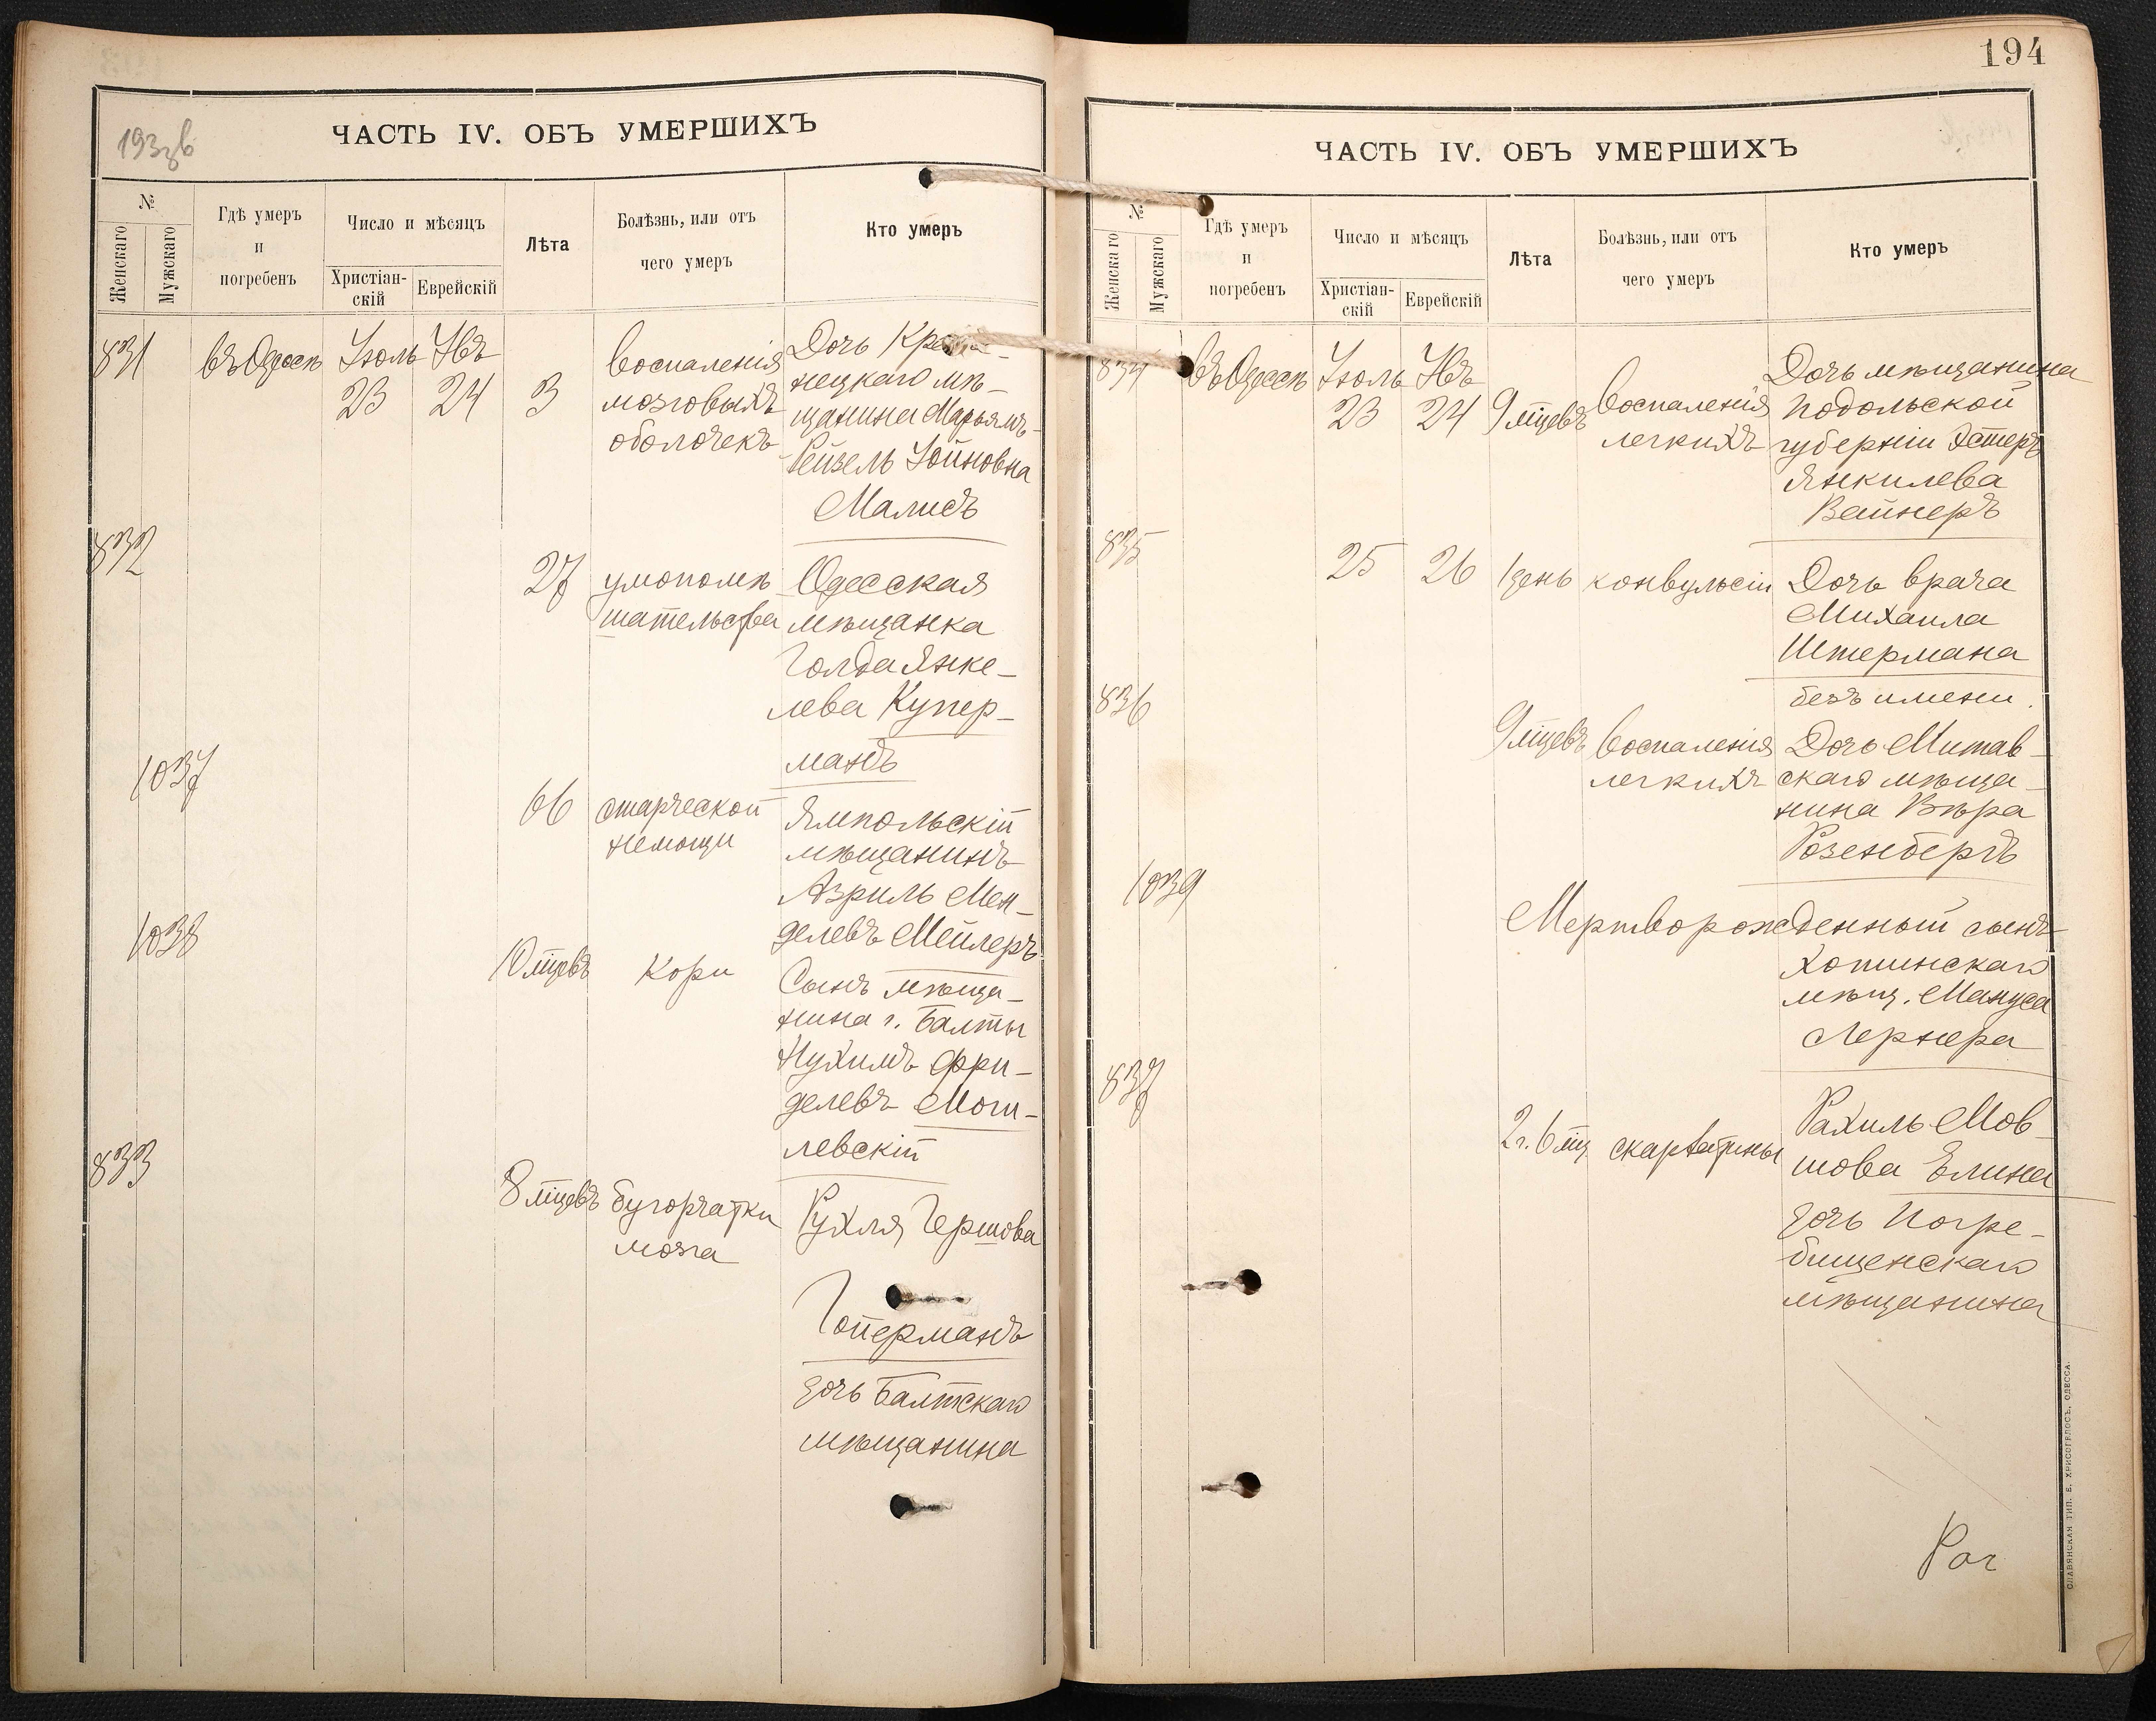 193 зв
ЧАСТЬ IV. ОБЪ УМЕРШИХЪ
№
Женскаго
Мужскаго
Гдѣ умеръ
и
погребенъ
Число и мѣсяцъ
Христіан-
скій
Еврейскій
Лѣта
Болѣзнь, или отъ
чего умеръ
Кто умеръ
831 въ Одессѣ Іюль Явъ воспаленія Дочь Кре
23 24 3 мозговыхъ нецкаго мѣ-
оболочекъ щанина Марьямъ-
Рейзель Іойновна
Малисъ
832
27 умопомѣ Одесская
шательства мѣщанка
Голда Янке-
лева Купер-
манъ
1037
66 старческой Ямпольскій
немощи мѣщанинъ
Азриль Мен-
делевъ Мейлеръ
1038
10 мцевъ Кори Сынъ мѣща-
нина г. Балты
Нухимъ Фри-
делевъ Моги-
левскій
833
8 мцевъ бугорчатки Рухля Гершова
мозга
Гойерманъ
дочь Балтскаго
мѣщанина
194
ЧАСТЬ IV. ОБЪ УМЕРШИХЪ
№
Женскаго
Мужскаго
Гдѣ умеръ
и
погребенъ
Число и мѣсяцъ
Христіан-
скій
Еврейскій
Лѣта
Болѣзнь, или отъ
чего умеръ
Кто умеръ
834 въ Одессѣ Іюль Явъ Дочь мѣщанина
23 24 9 мцевъ воспаленія Подольской
легкихъ губерніи Эстеръ
Янкилева
Вайнеръ
835
25 26 1 день конвульсіи Дочь врача
Михаила
Штермана
безъ имени.
836
9 мцевъ воспаленія Дочь Митав-
легкихъ скаго мѣща-
нина Вѣра
Розенбергъ
1039
Мертворожденный сынъ
Хотинскаго
мѣщ. Мануса
Лернера
837
2 г. 6 мц скарлатины Рахиль Мов-
шова Елина
дочь Погре-
бищенскаго
мѣщанина
СЛАВЯНСКАЯ ТИП. Е. ХРИСОГЕЛОСЪ, ОДЕССА.